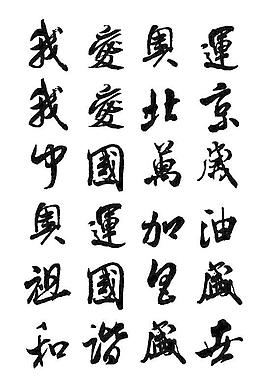 我愛奥運
我愛北京
中國萬歲
奥運加油
祖國昌盛
和諧盛世